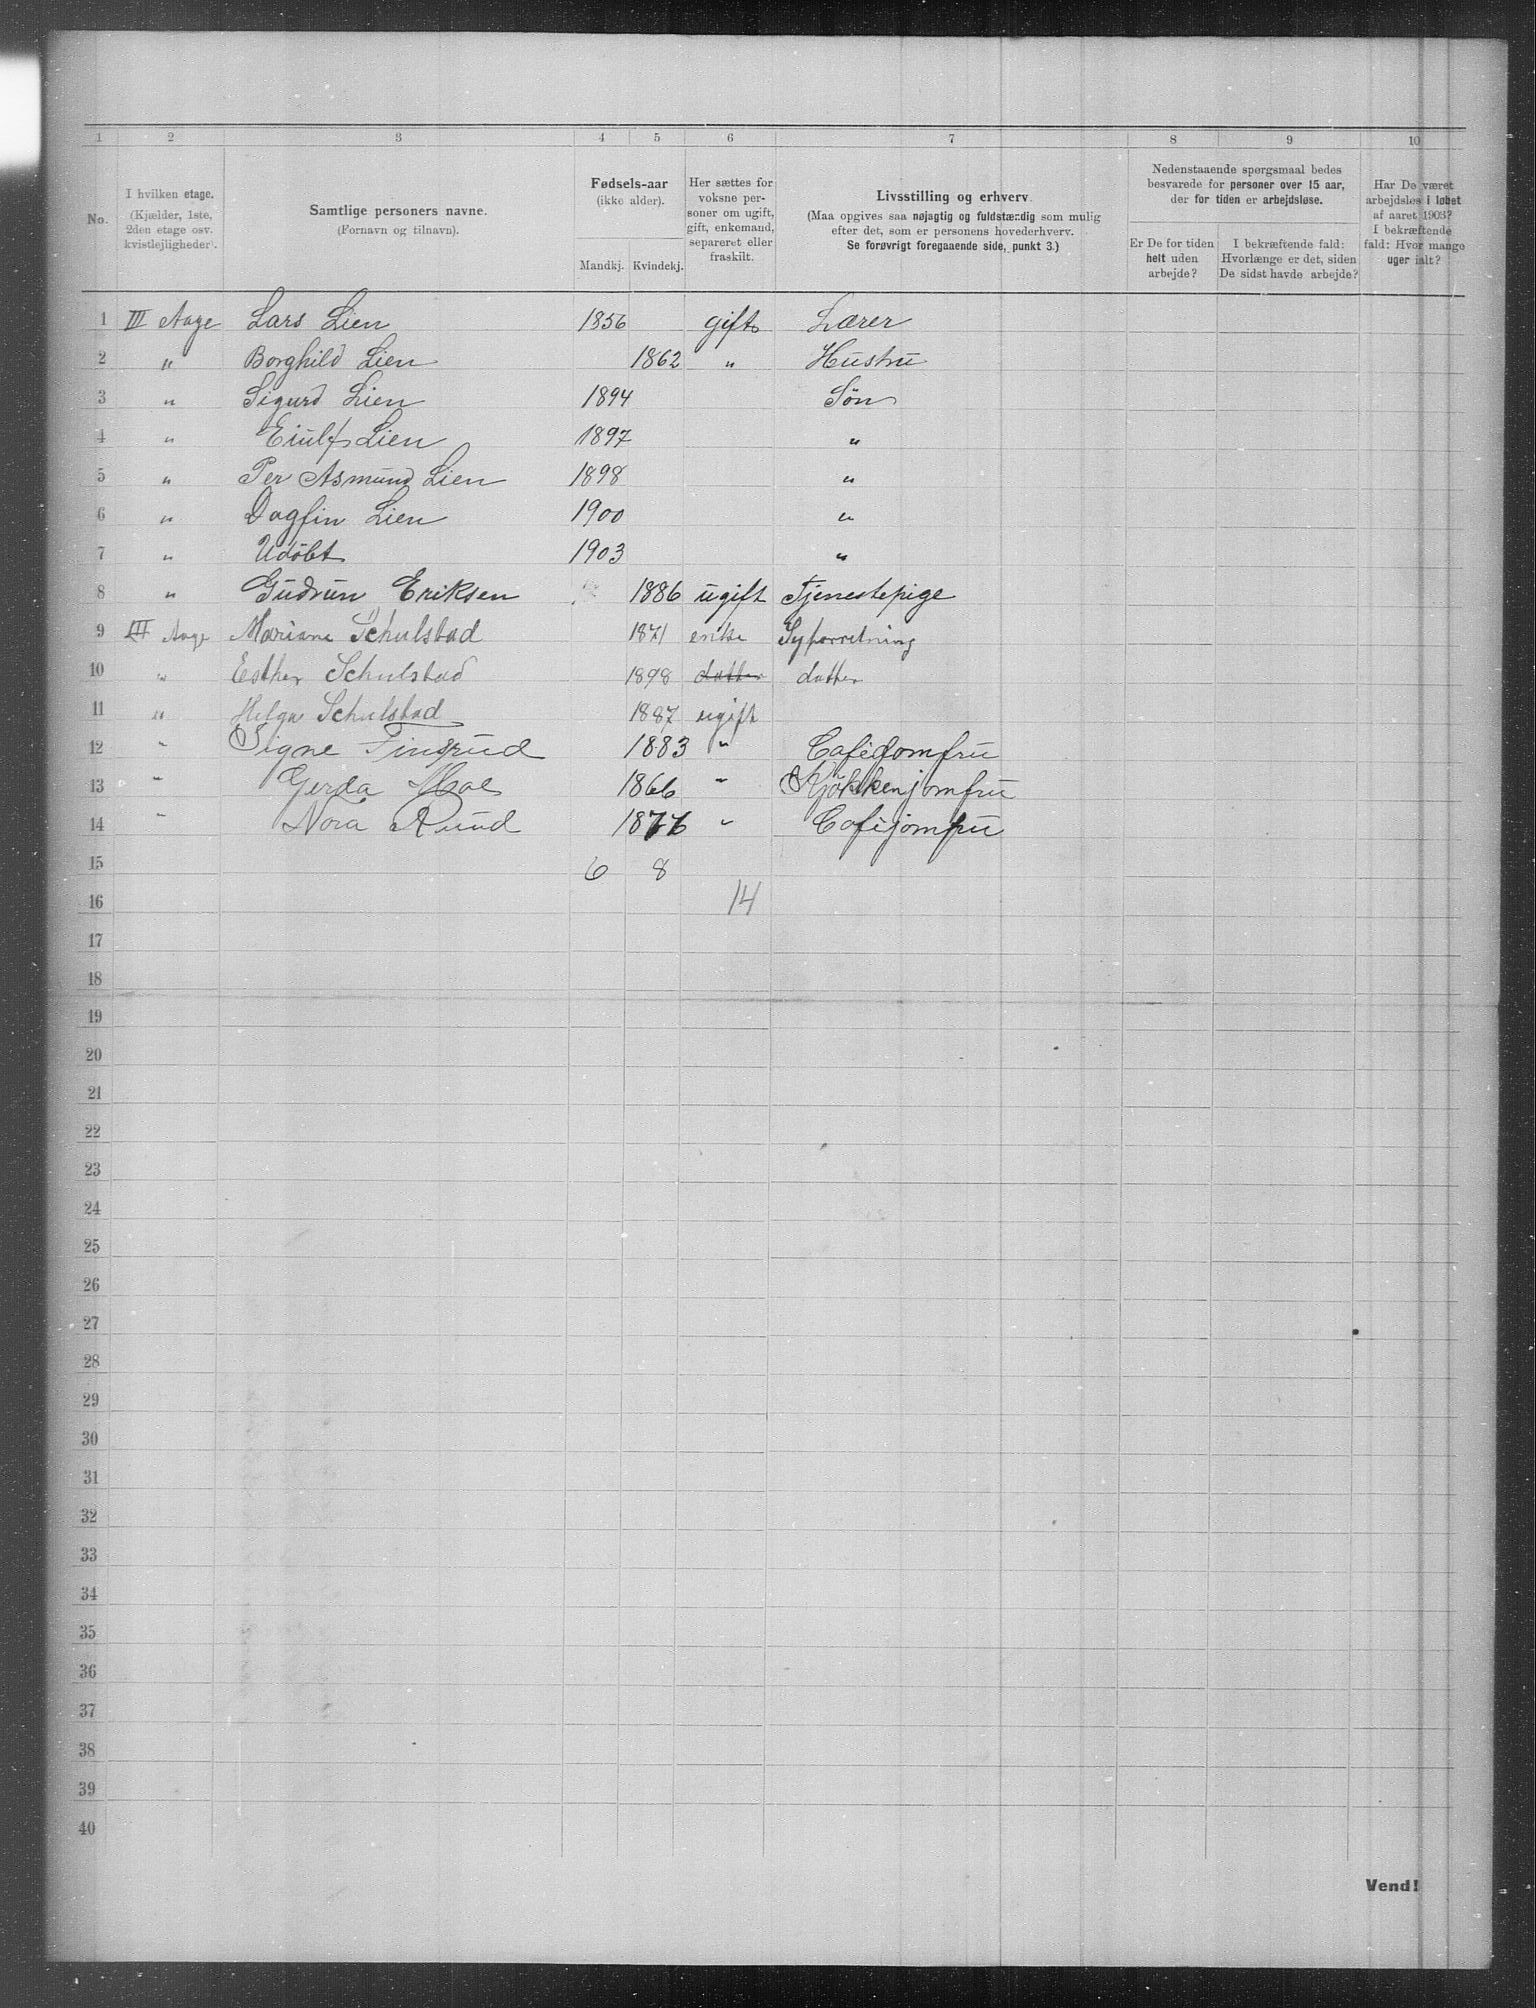 1 2 3 4 5 6 7 8 9 10
No.
I hvilken etage.
(Kjælder, 1ste,
2den etage osv.
kvistlejligheder).
Samtlige personers navne.
(Fornavn og tilnavn).
Fødsels-aar
(ikke alder).
Mandkj. Kvindekj.
Her sættes for
voksne per-
soner om ugift,
gift, enkemand,
separeret eller
fraskilt.
Livsstilling og erhverv.
(Maa opgives saa nøjagtig og fuldstændig som mulig
efter det, som er personens hovederhverv.
Se forøvrigt foregaaende side, punkt 3.)
Nedenstaaende spørgsmaal bedes
besvarede for personer over 15 aar,
der for tiden er arbejdsløse.
Er De for tiden
helt uden
arbejde?
I bekræftende fald:
Hvorlænge er det, siden
De sidst havde arbejde?
Har De været
arbejdsløs i løbet
af aaret 1903?
I bekræftende
fald: Hvor mange
uger ialt?
1 III Lars Lien 1856 gift Lærer
2 " Borghild Lien 1862 " Hustru
3 " Sigurd Lien 1894 Søn
4 " Eiulf Lien 1897 "
5 " Per Asmund Lien 1898 "
6 " Dagfin Lien 1900 "
7 " Udöbt 1903 "
8 " Gudrun Eriksen 1886 ugift Tjenestepige
9 III Mariane Schulstad 1871 enke Syforretning
10 " Esther Schulstad 1898 datter datter
11 " Helga Schulstad 1887 ugift
12 " Signe 1883 " Cafejomfru
13 " Gerda Moe 1866 " Kjökkenjomfru
14 " Nora Ruud " Cafejomfru
15 6 8
16 14
17
18
19
20
21
22
23
24
25
26
27
28
29
30
31
32
33
34
35
36
37
38
39
40
Vend!